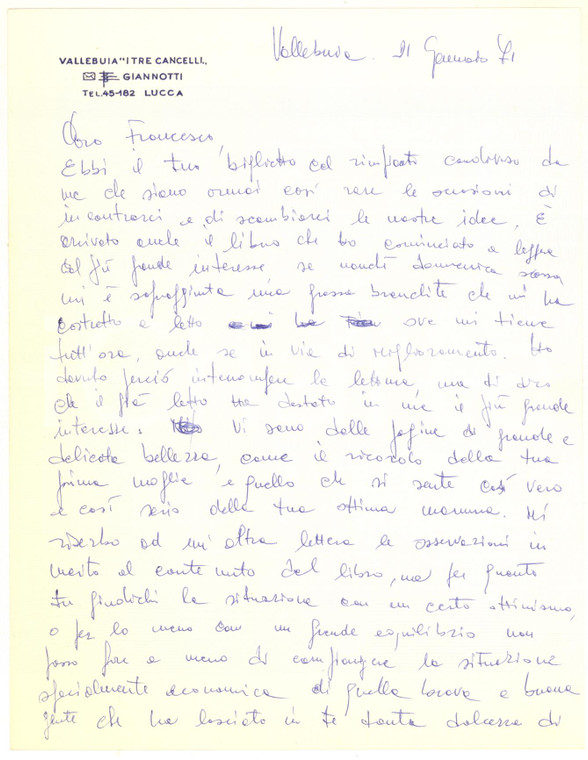 VALLEBUIA "I TRE CANCELLI"
GIANNOTTI
TEL. 45-182 LUCCA
Vallebuia. 21 Gennaio 71
Caro Francesco,
Ebbi il tuo biglietto col rimpianto condiviso da
me che siano ormai così rare le occasioni di
incontrarci e di scambiarci le nostre idee. È
arrivato anche il libro che ho cominciato a leggere
col più grande interesse se nonché domenica scorsa
mi è sopraggiunta una grossa bronchite che mi ha
costretto a letto ove mi tiene
tutt'ora, anche se in via di miglioramento. Ho
dovuto perciò interrompere la lettura, ma ti dico
che il già letto ha destato in me il più grande
interesse. Vi sono delle pagine di grande e
delicata bellezza, come il ricordo della tua
prima moglie, e quello che si sente così vero
e così serio della tua ottima mamma. Mi
riserbo ad un'altra lettera le osservazioni in
merito al contenuto del libro, ma per quanto
tu giudichi la situazione con un certo ottimismo,
o per lo meno con un grande equilibrio non
posso fare a meno di compiangere la situazione
specialmente economica di quella brava e buona
gente che ha lasciato in te tanta dolcezza di